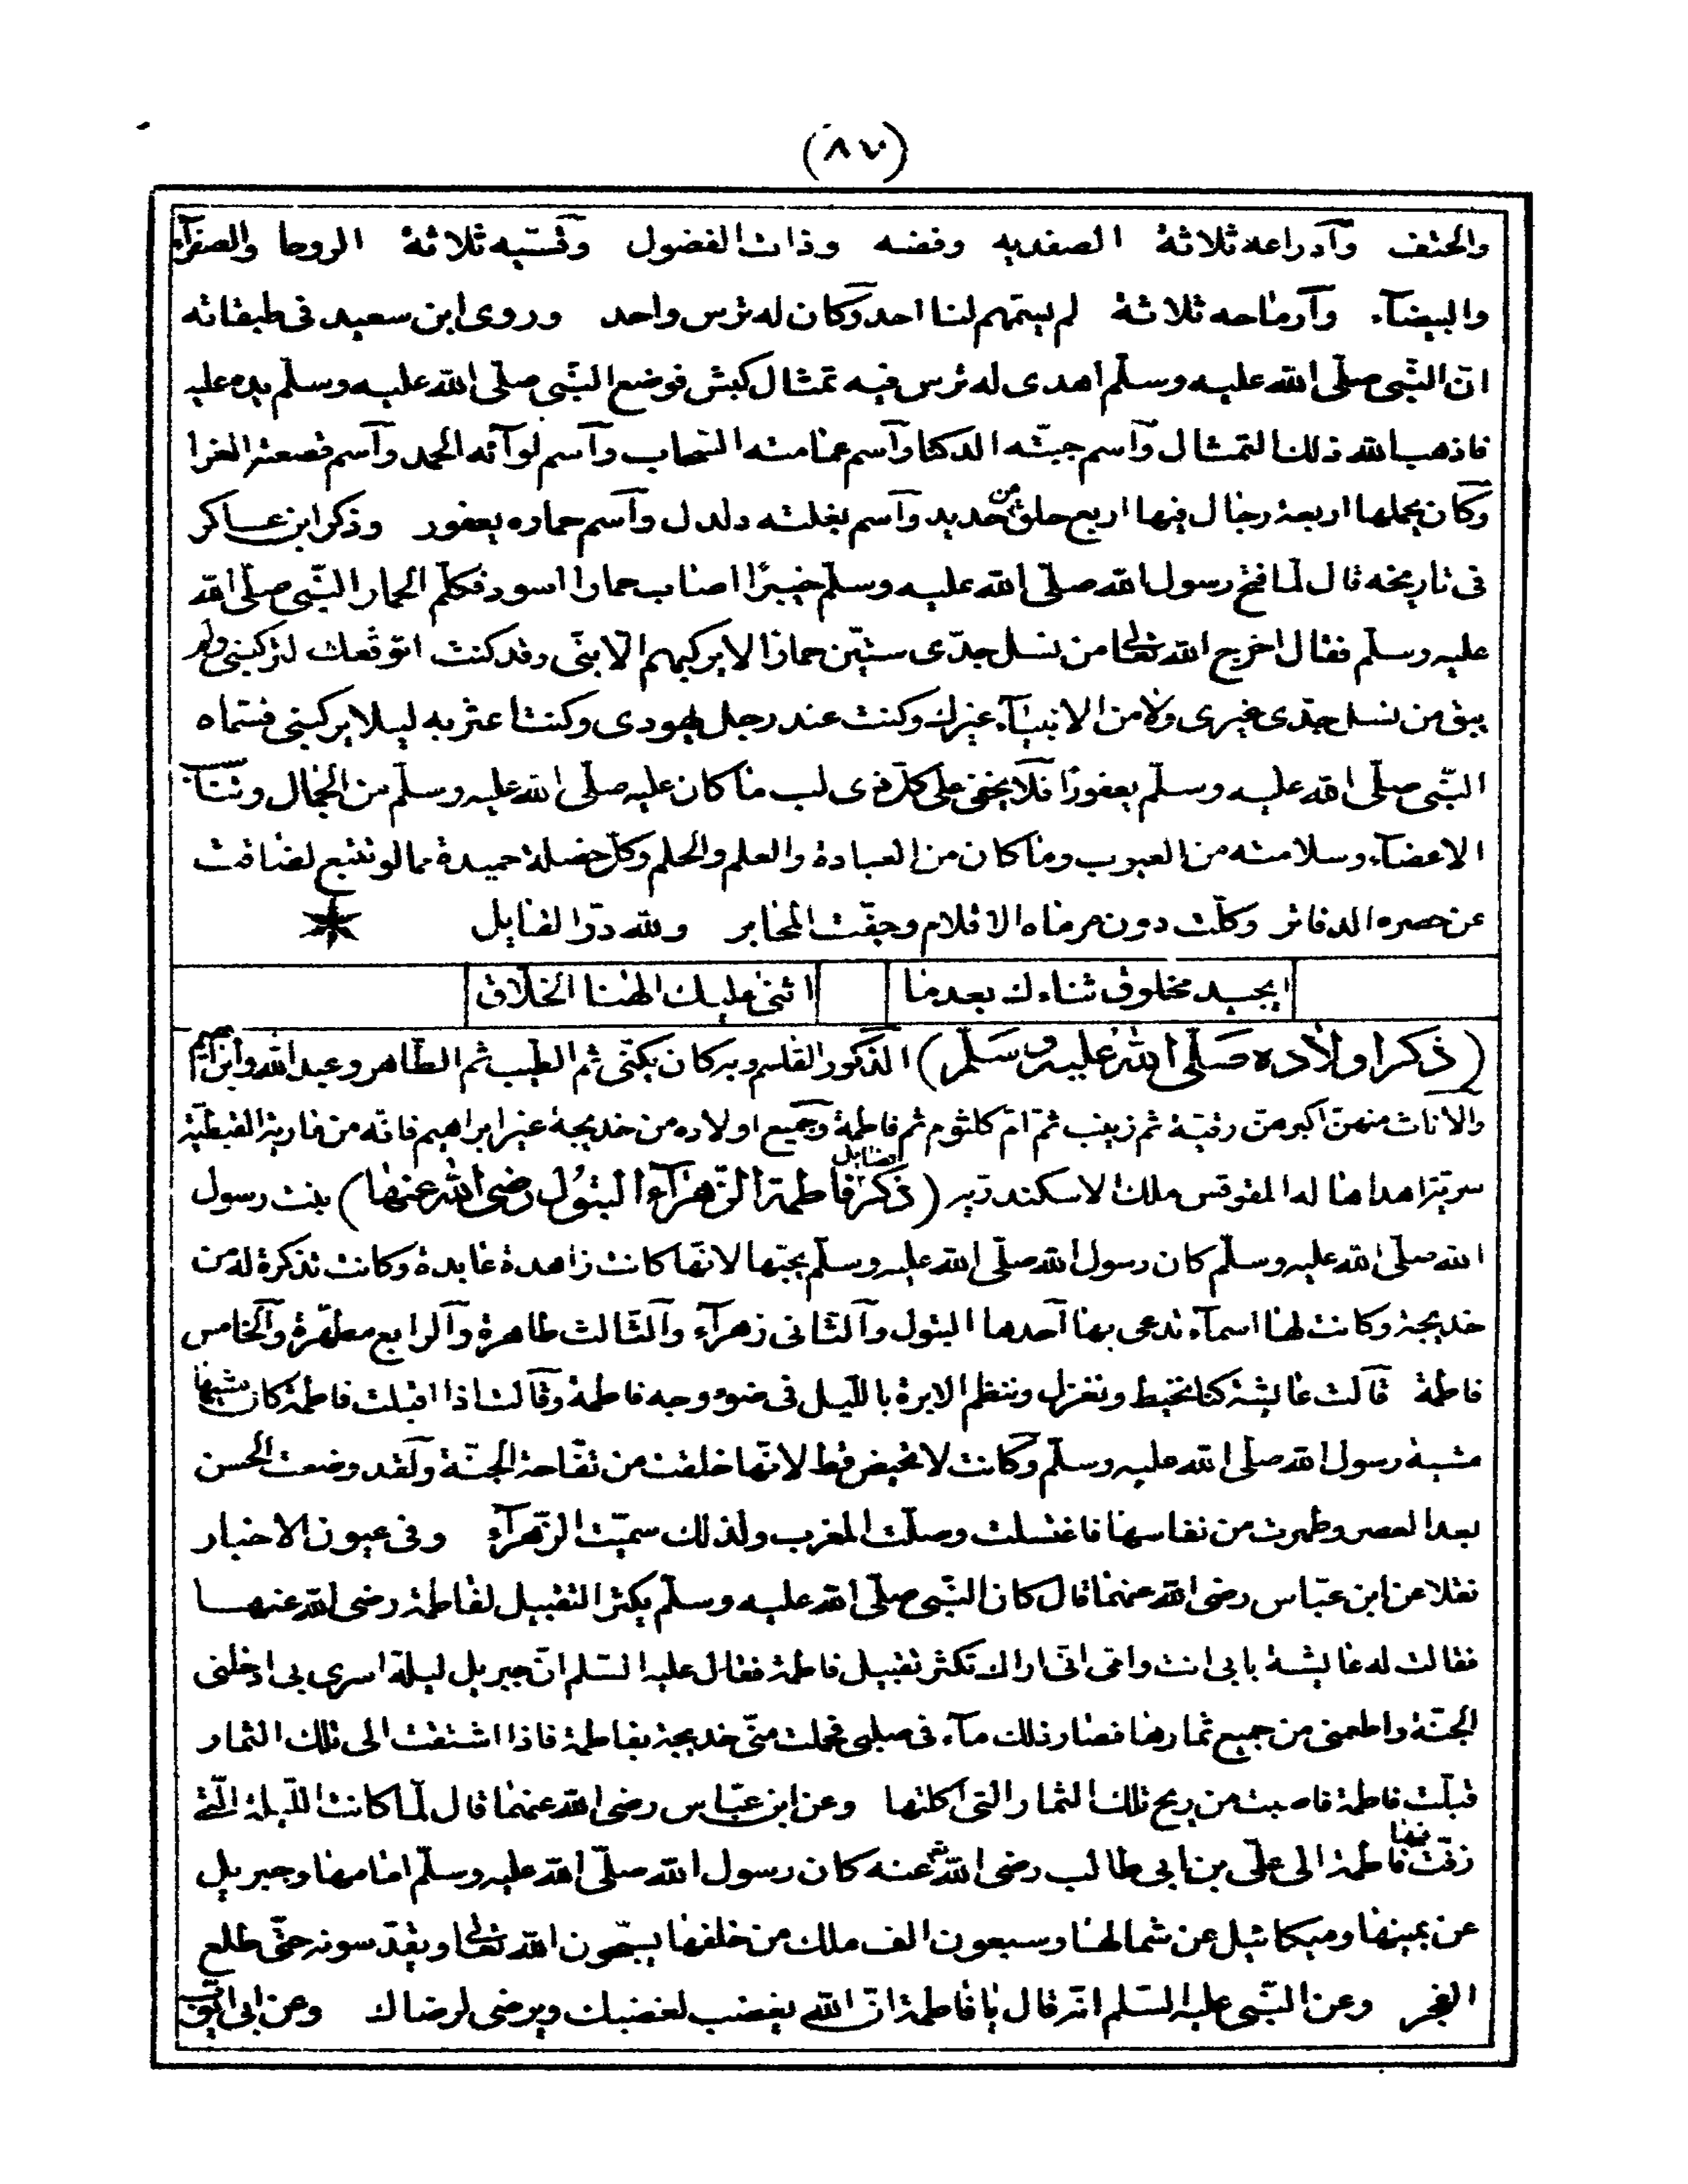 (٨٧)
والحتف وآدراعه ثلاثة الصفديه وفضه وذات الفضول وقسيه ثلاثة الروحا والصفرآء
والبيضآء وآرماحه ثلاثة لم يسمهم لنا احد وكان له ترس واحد وروى ابن سعيد فى طبقاته
انّ النّبى صلّى الله عليه وسلّم اهدى له ترس فيه تمثال كبش فوضع النّبى صلّى الله عليه وسلّم يده عليه
فاذهب الله ذلك التمثال وآسم جبّته الدكنا وآسم عمامته السّحاب وآسم لوآئه الحمد وآسم قصعته الغرا
وكان يحملها اربعة رجال فيها اربع حلق من حديد وآسم بغلته دلدل وآسم حماره يعفور وذكر ابن عساكر
فى تاريخه قال لمّا فتح رسول الله صلّى الله عليه وسلّم خيبرًا اصاب حمارا اسود فكلّم الحمار النّبى صلّى الله
عليه وسلّم فقال اخرج الله تعالى من نسل جدّى ستّين حمارًا لا يركبهم الّا بنى وقد كنت اتوقّعك لتركبنى ولم
يبق من نسل جدّى غيرى ولا من الانبيآء غيرك وكنت عند رجل يهودى وكنت اعثر به ليلا يركبنى فسمّاه
النّبى صلّى الله عليه وسلّم يعفورًا فلا يخفى على كلّ ذى لب ما كان عليه صلّى الله عليه وسلّم من الجمال وتناسب
الاعضآء وسلامته من العيوب وما كان من العبادة والعلم والحلم وكلّ خصلة حميدة مما لو تتبع لضاقت
عن حصره الدفاتر وكلّت دون مرماه الاقلام وجفّت المحابر ولله درّ القايل
ايجيد مخلوق ثناءك بعدما اثنى عليك الهنا الخلّاق
(ذكر اولاده صلّى الله عليه وسلّم) الذّكور القاسم وبه كان يكنّى ثم الطّيب ثم الطّاهر وعبد الله وابراهيم
والاناث منهنّ اكبرهنّ رقيّة ثم زينب ثمّ امّ كلثوم ثم فاطمة وجميع اولاده من خديجة غير ابراهيم فانّه من مارية القبطيّة
سريّة اهداها له المقوقس ملك الاسكندريّه (ذكر فضايل فاطمة الزّهرآء البتول رضى الله عنها) بنت رسول
الله صلّى الله عليه وسلّم كان رسول الله صلّى الله عليه وسلّم يحبّها لانّها كانت زاهدة عابدة وكانت تذكرة له من
خديجة وكانت لها اسمآء تدعى بها آحدها البتول وآلثّانى زهرآء وآلثّالث طاهرة وآلرابع مطهّرة وآلخامس
فاطمة قالت عايشة كنّا نخيط ونغزل وننظم الابرة بالليل فى ضوء وجه فاطمة وقالت اذا اقبلت فاطمة كان مشيها
مشية رسول الله صلّى الله عليه وسلّم وكانت لا تحيض قط لانّها خلقت من تفّاحة الجنّة ولقد وضعت الحسن
بعد العصر وطهرت من نفاسها فاغتسلت وصلّت المغرب ولذلك سميّت الزّهرآء وفى عيون الاخبار
نقلا عن ابن عبّاس رضى الله عنهما قال كان النّبى صلّى الله عليه وسلّم يكثر التقبيل لفاطمة رضى الله عنها
فقالت له عايشة بابى انت وامّى انّى اراك تكثر تقبيل فاطمة فقال عليه السّلم انّ جبريل ليلة اسرى بى ادخلنى
الجنّة واطعمنى من جميع ثمارها فصار ذلك مآء فى صلبى فحملت منّى خديجة بفاطمة فاذا اشتقت الى تلك الثمار
قبلّت فاطمة فاصبت من ريح تلك الثمار التى اكلتها وعن ابن عبّاس رضى الله عنهما قال لمّا كانت اللّيلة الّتى
زفّت فيها فاطمة الى علىّ بن ابى طالب رضى الله عنه كان رسول الله صلّى الله عليه وسلّم امامها وجبريل
عن يمينها وميكائيل عن شمالها وسبعون الف ملك من خلفها يسبّحون الله تعالى ويقدّسونه حتّى طلع
الفجر وعن النّبى عليه السّلم انّه قال يا فاطمة انّ الله يغضب لغضبك ويرضى لرضاك وعن ابى ايّوب